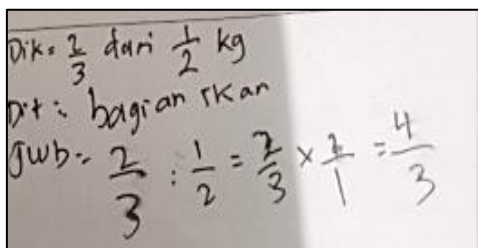 Dik: 2/3 dari 1/2 kg
Dit: bagian ikan
Jwb: 2/3 : 1/2 = 2/3 × 2/1 = 4/3